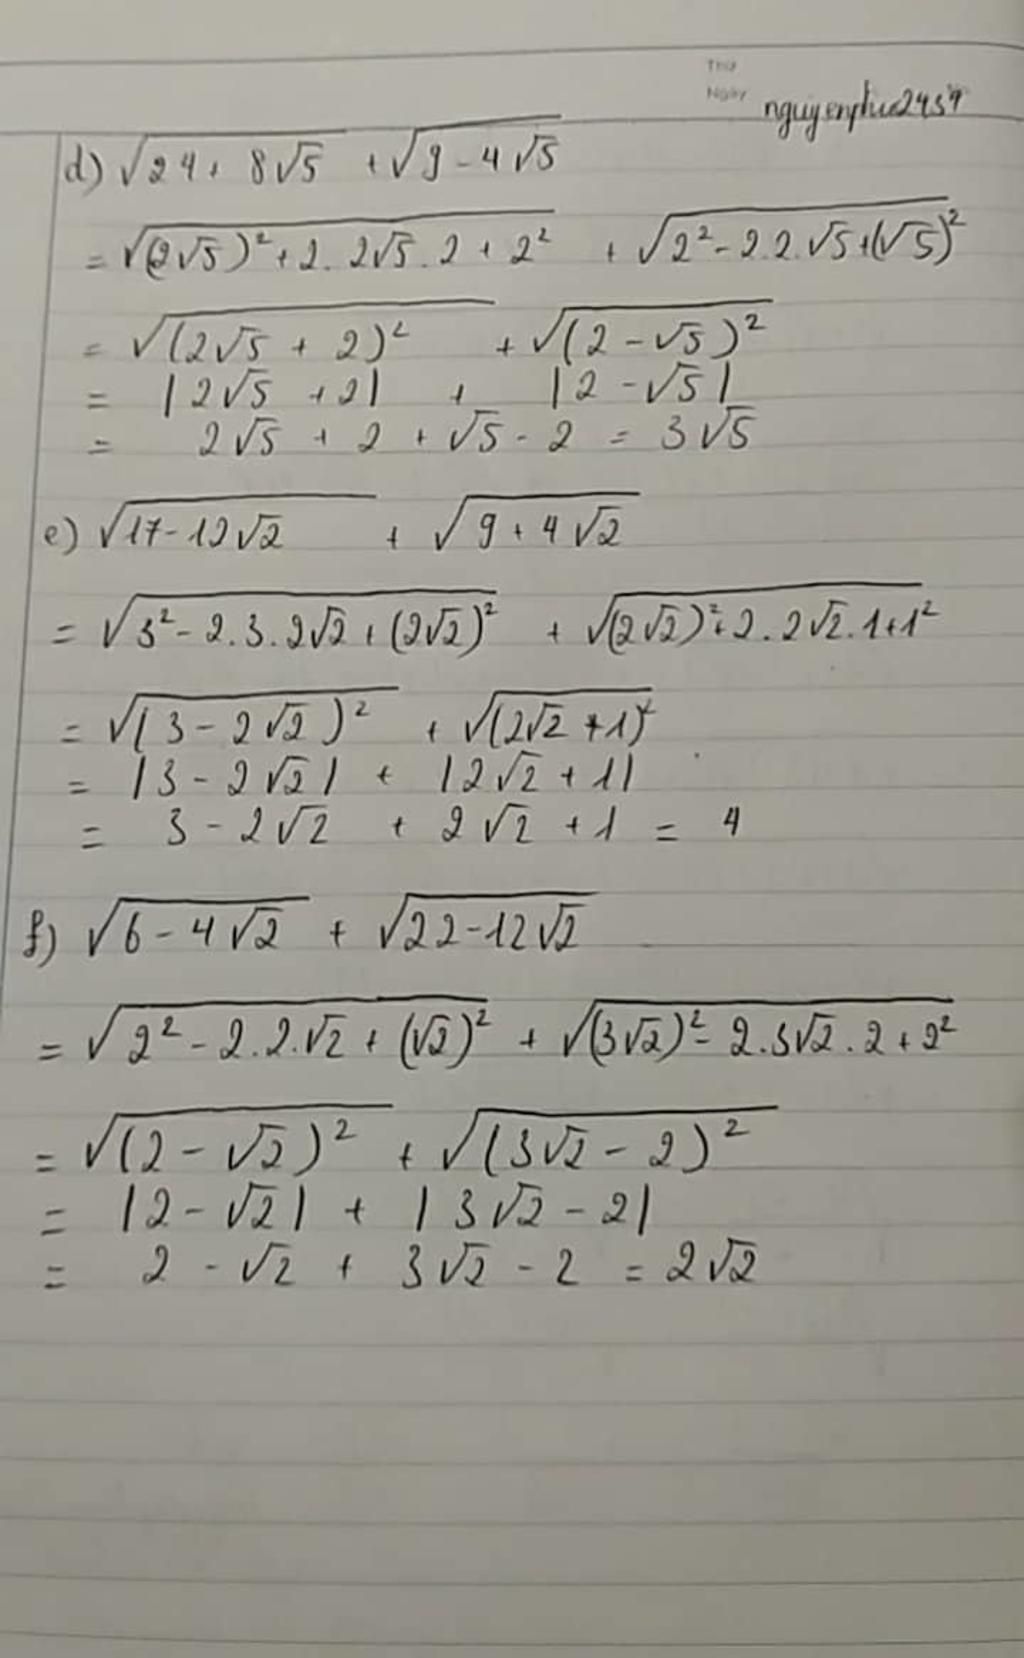 Thứ
Ngày
d) √(24 + 8√5) + √(9 - 4√5)
= √((2√5)² + 2. 2√5. 2 + 2²) + √(2² - 2.2.√5 + (√5)²)
= √((2√5 + 2)²) + √((2 - √5)²)
= |2√5 + 2| + |2 - √5|
= 2√5 + 2 + √5 - 2 = 3√5
e) √(17 - 12√2) + √(9 + 4√2)
= √(3² - 2.3.2√2 + (2√2)²) + √((2√2)² + 2.2√2.1 + 1²)
= √((3 - 2√2)²) + √((2√2 + 1)²)
= |3 - 2√2| + |2√2 + 1|
= 3 - 2√2 + 2√2 + 1 = 4
f) √(6 - 4√2) + √(22 - 12√2)
= √(2² - 2.2.√2 + (√2)²) + √((3√2)² - 2.3√2.2 + 2²)
= √((2 - √2)²) + √((3√2 - 2)²)
= |2 - √2| + |3√2 - 2|
= 2 - √2 + 3√2 - 2 = 2√2